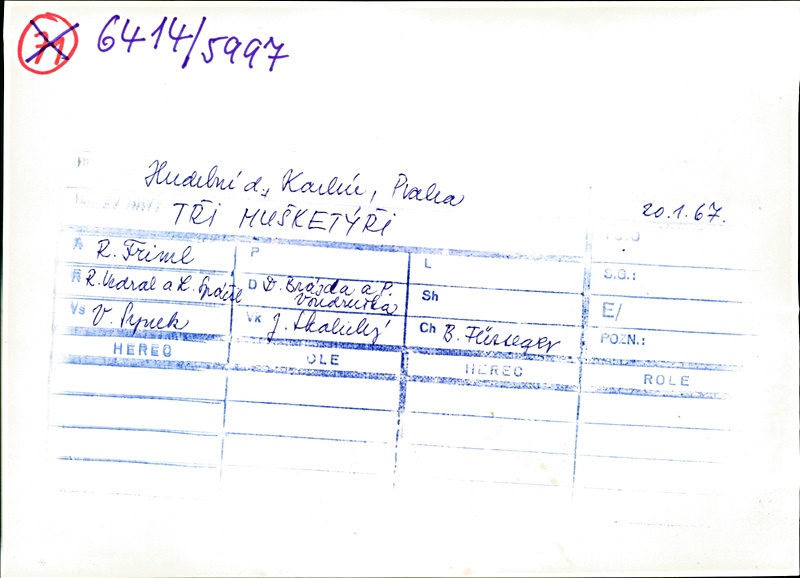 71 6414/5997
Hudební d., Karlín, Praha
TŘI MUŠKETÝŘI 20.1.67.
A R. Friml P L
R R. Vedral a K. Späte D D. Brázda a P. Vondruška Sh S.G.:
Vs V. Synek Vk J. Skalický Ch B. Fürseger E/
POZN.:
HEREC OLE HEREC ROLE